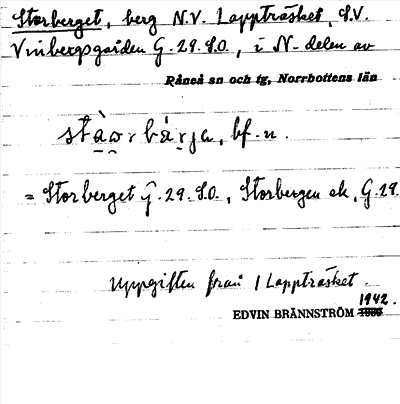 Storberget, berg N.V. Lappträsket, S.V.
Vinbergsgården G.29.S.O., i N-delen av
Råneå sn och tg, Norrbottens län
stàor bǻrja, bf. n.
= Storberget G.29.S.O., Storbergen ek. G.29.
Uppgiften från 1 Lappträsket.
1942.
EDVIN BRÄNNSTRÖM